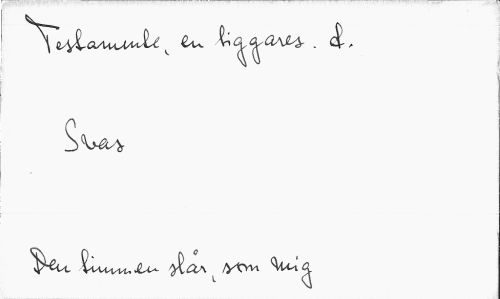 Testamente, en tiggares. d.
Svas
Den timmen slår, som mig